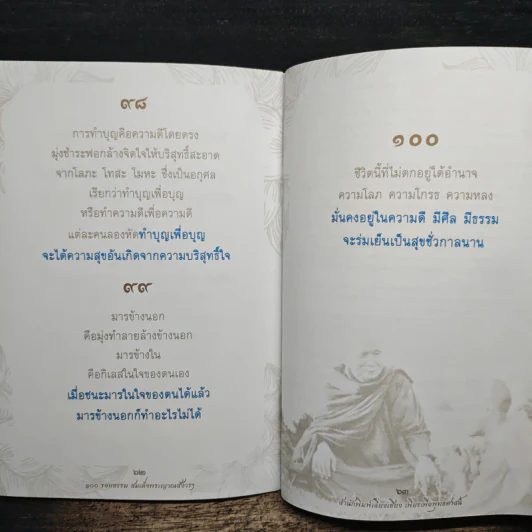 ๙๘
การทำบุญคือความดีโดยตรง
มุ่งชำระฟอกล้างจิตใจให้บริสุทธิ์สะอาด
จากโลภะ โทสะ โมหะ ซึ่งเป็นอกุศล
เรียกว่าทำบุญเพื่อบุญ
หรือทำความดีเพื่อความดี
แต่ละคนลองหัดทำบุญเพื่อบุญ
จะได้ความสุขอันเกิดจากความบริสุทธิ์ใจ
๙๙
มารข้างนอก
คือมุ่งทำลายล้างข้างนอก
มารข้างใน
คือกิเลสในใจของตนเอง
เมื่อชนะมารในใจของตนได้แล้ว
มารข้างนอกก็ทำอะไรไม่ได้
๖๒
๑๐๐ รอยธรรม สมเด็จพระญาณสังวรฯ
๑๐๐
ชีวิตนี้ที่ไม่ตกอยู่ใต้อำนาจ
ความโลภ ความโกรธ ความหลง
มั่นคงอยู่ในความดี มีศีล มีธรรม
จะร่มเย็นเป็นสุขชั่วกาลนาน
๖๓
สำนักพิมพ์เลี่ยงเชียง เพียรเพื่อพุทธศาสน์